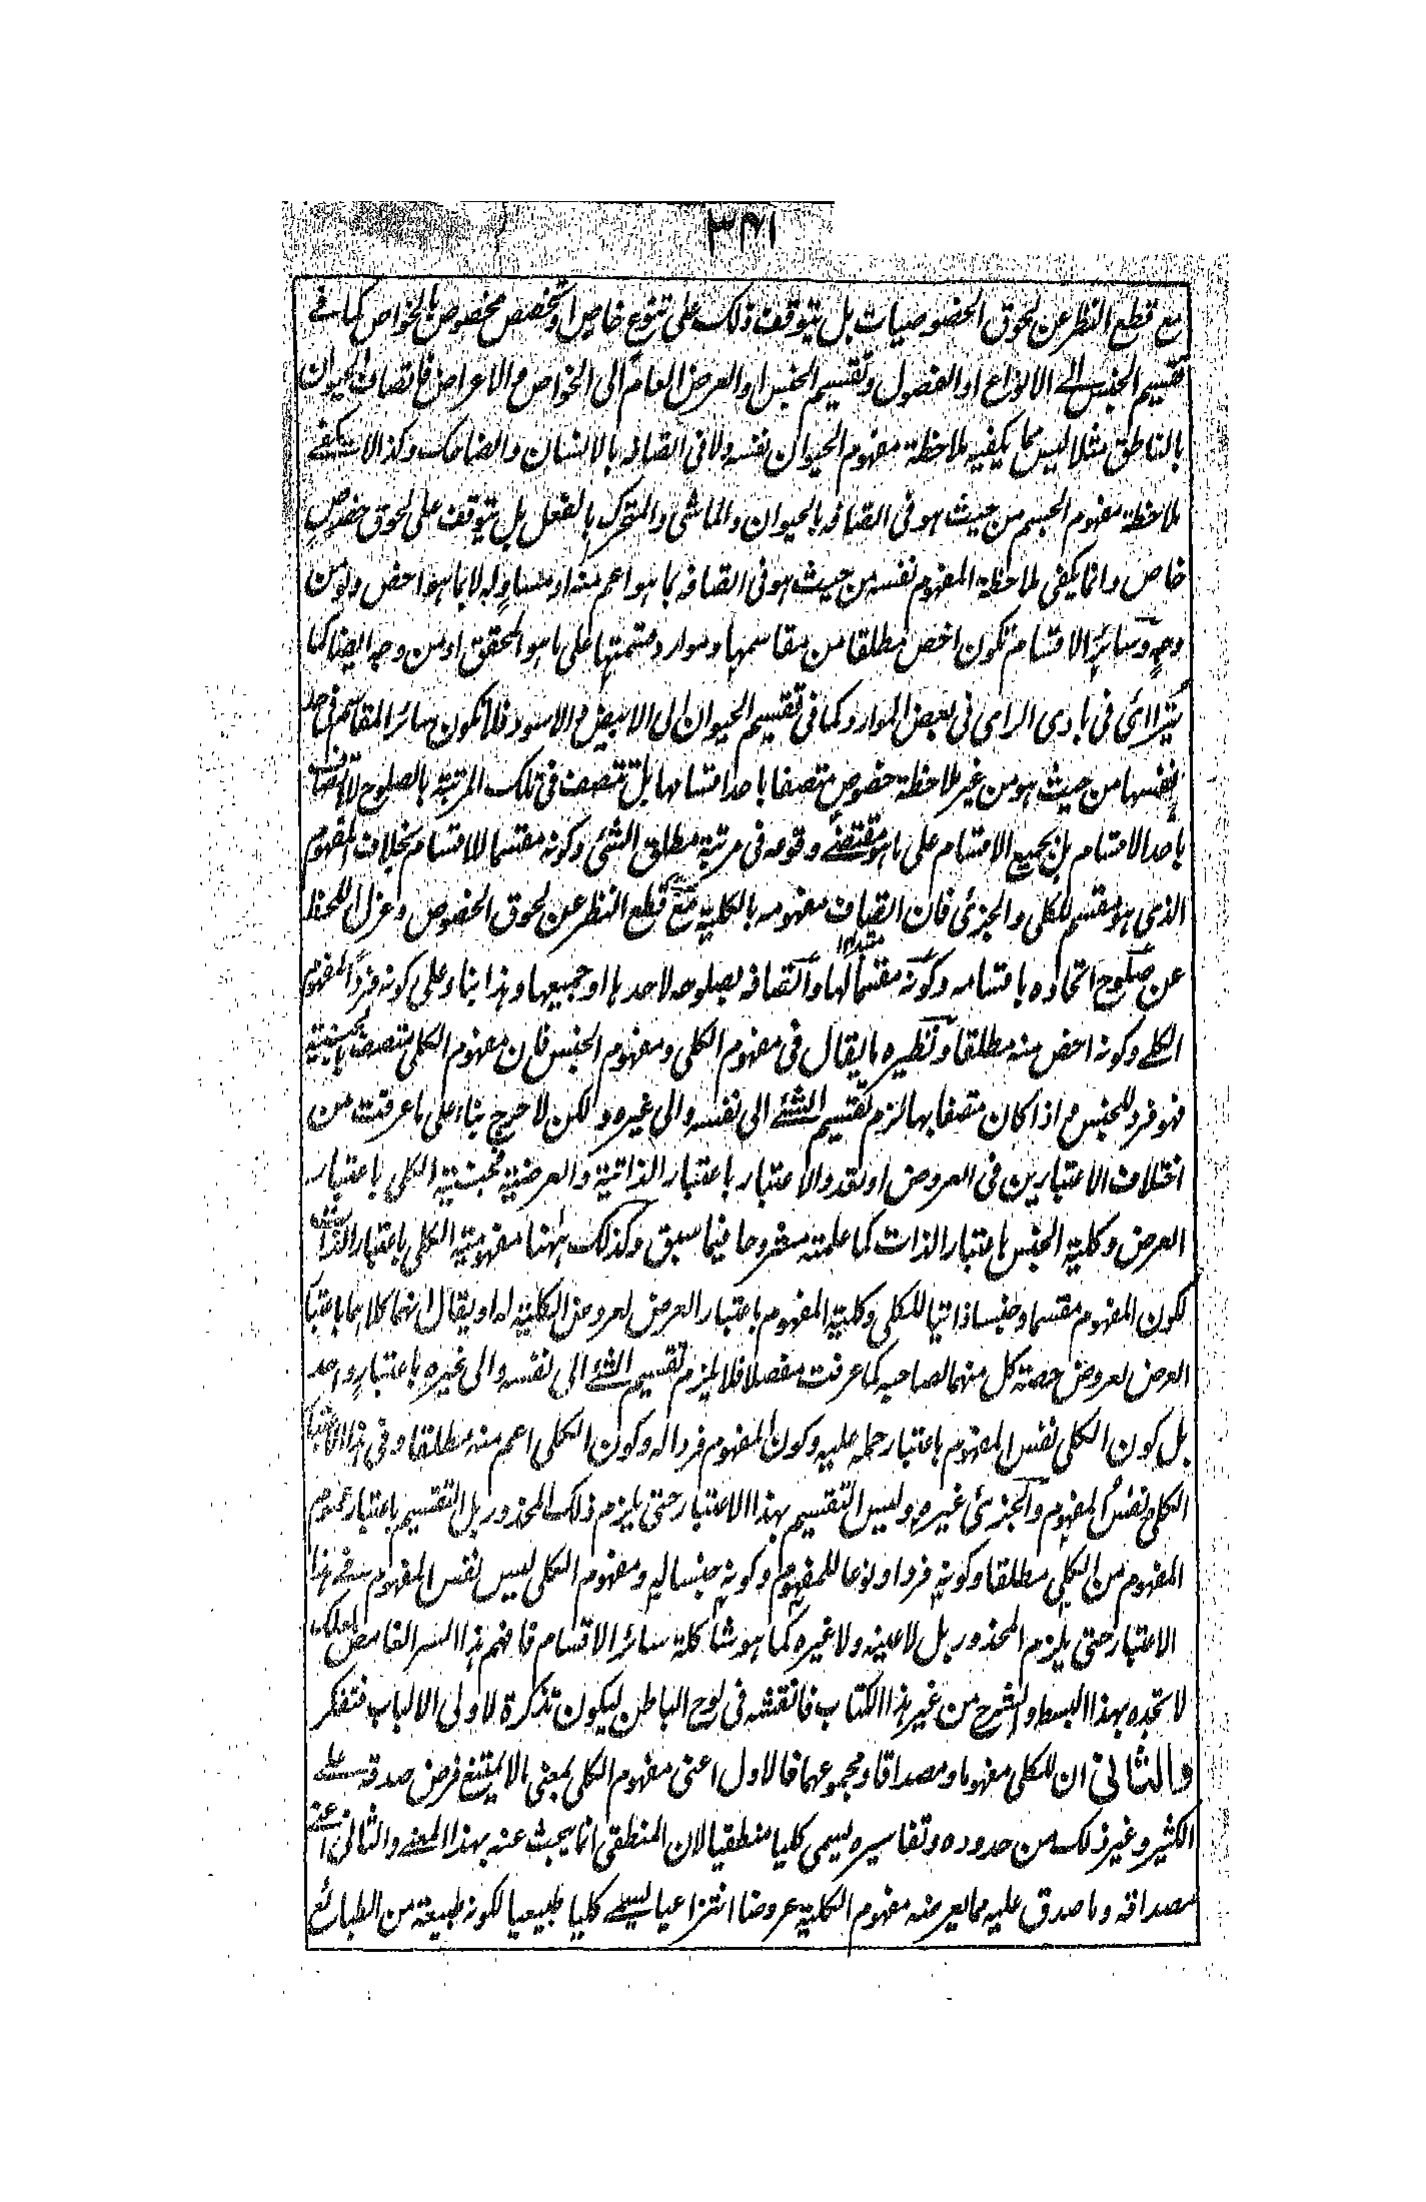 ۳۴۱
مع قطع النظر عن لحوق الخصوصيات بل يتوقف ذلك على تنوع خاص او تخصص مخصوص بالخواص كما في
تقسيم الجنس الى الانواع او الفصول وتقسيم الجنس او العرض العام الى الخواص والاعراض فاتصاف الحيوان
بالناطق مثلا ليس مما يكفيه ملاحظة مفهوم الحيوان نفسه ولا في اتصافه بالانسان والضاحك وكذا لا يكفى
ملاحظة مفهوم الجسم من حيث هو في اتصافه بالحيوان والماشي والمتحرك بالفعل بل يتوقف على لحوق خصوص
خاص وانما يكفى ملاحظة المفهوم نفسه من حيث هو في اتصافه بما هو اعم منه او مساو له لا بما هو اخص ولو من
وجه وسائر الاقسام تكون اخص مطلقا من مقاسمها وموارد قسمتها على ما هو المحقق او من وجه ايضا كما
يترائى في بادى الراى في بعض الموارد كما في تقسيم الحيوان الى الابيض والاسود فلا تكون سائر المقاسم في حد
نفسها من حيث هو من غير ملاحظة خصوص متصفا باحد اقسامها بل تتصف في تلك المرتبة بالصلوح لاتصاف
باحد الاقسام بل بجميع الاقسام على ما هو مقتضى وقوعه في مرتبة مطلق الشئ وكونه مقسما للاقسام بخلاف المفهوم
الذى هو مقسم للكلى والجزئى فان اتصاف مفهومه بالكلية مع قطع النظر عن لحوق الخصوص وعزل اللحظ
عن صلوح اتحاده باقسامه وكونه مقسما لها واتصافه بصلوحه لاحدها او جميعها وهذا بناء على كونه فردا لمفهوم
الكلى وكونه اخص منه مطلقا ونظيره ما يقال في مفهوم الكلى ومفهوم الجنس فان مفهوم الكلى متصف بالجنسية
فهو فرد للجنس واذا كان متصفا بها لزم تقسيم الشئ الى نفسه والى غيره ولكن لا حرج بناء على ما عرفت من
اختلاف الاعتبارين في العروض او تعدد الاعتبار باعتبار الذاتية والعرضية فجنسية الكلى باعتبار
العرض وكلية الجنس باعتبار الذات كما علمته مشروحا فيما سبق وكذلك ههنا مفهومية الكلى باعتبار الذات
لكون المفهوم مقسما وجنسا ذاتيا للكلى وكلية المفهوم باعتبار العرض لعروض الكلية له او يقال انهما كلاهما باعتبار
العرض لعروض حصة كل منهما لصاحبه كما عرفت مفصلا فلا يلزم تقسيم الشئ الى نفسه والى غيره باعتبار واحد
بل كون الكلى نفس المفهوم باعتبار حمله عليه وكون المفهوم فردا له وكون الكلى اعم منه مطلقا وفي هذا الاعتبار
الكلى نفس المفهوم والجزئى غيره وليس التقسيم بهذا الاعتبار حتى يلزم ذلك المحذور بل التقسيم باعتبار عموم
المفهوم من الكلى مطلقا وكونه فردا ونوعا للمفهوم وكونه جنسا له ومفهوم الكلى ليس نفس المفهوم في هذا
الاعتبار حتى يلزم المحذور بل لا عينه ولا غيره كما هو شاكلة سائر الاقسام فافهم هذا السر الغامض لعلك
لا تجده بهذا البسط والشرح من غير هذا الكتاب فانقشه في لوح الباطن ليكون تذكرة لاولى الالباب فتفكر
والثانى ان للكلى مفهوما ومصداقا ومجموعهما فالاول اعنى مفهوم الكلى بمعنى ما لا يمتنع فرض صدقه على
الكثير وغير ذلك من حدوده وتفاسيره يسمى كليا منطقيا لان المنطقى انما يبحث عنه بهذا المعنى والثانى اعنى
مصداقه وما صدق عليه مما يعرضه مفهوم الكلية عروضا انتزاعيا يسمى كليا طبيعيا لكونه طبيعة من الطبائع